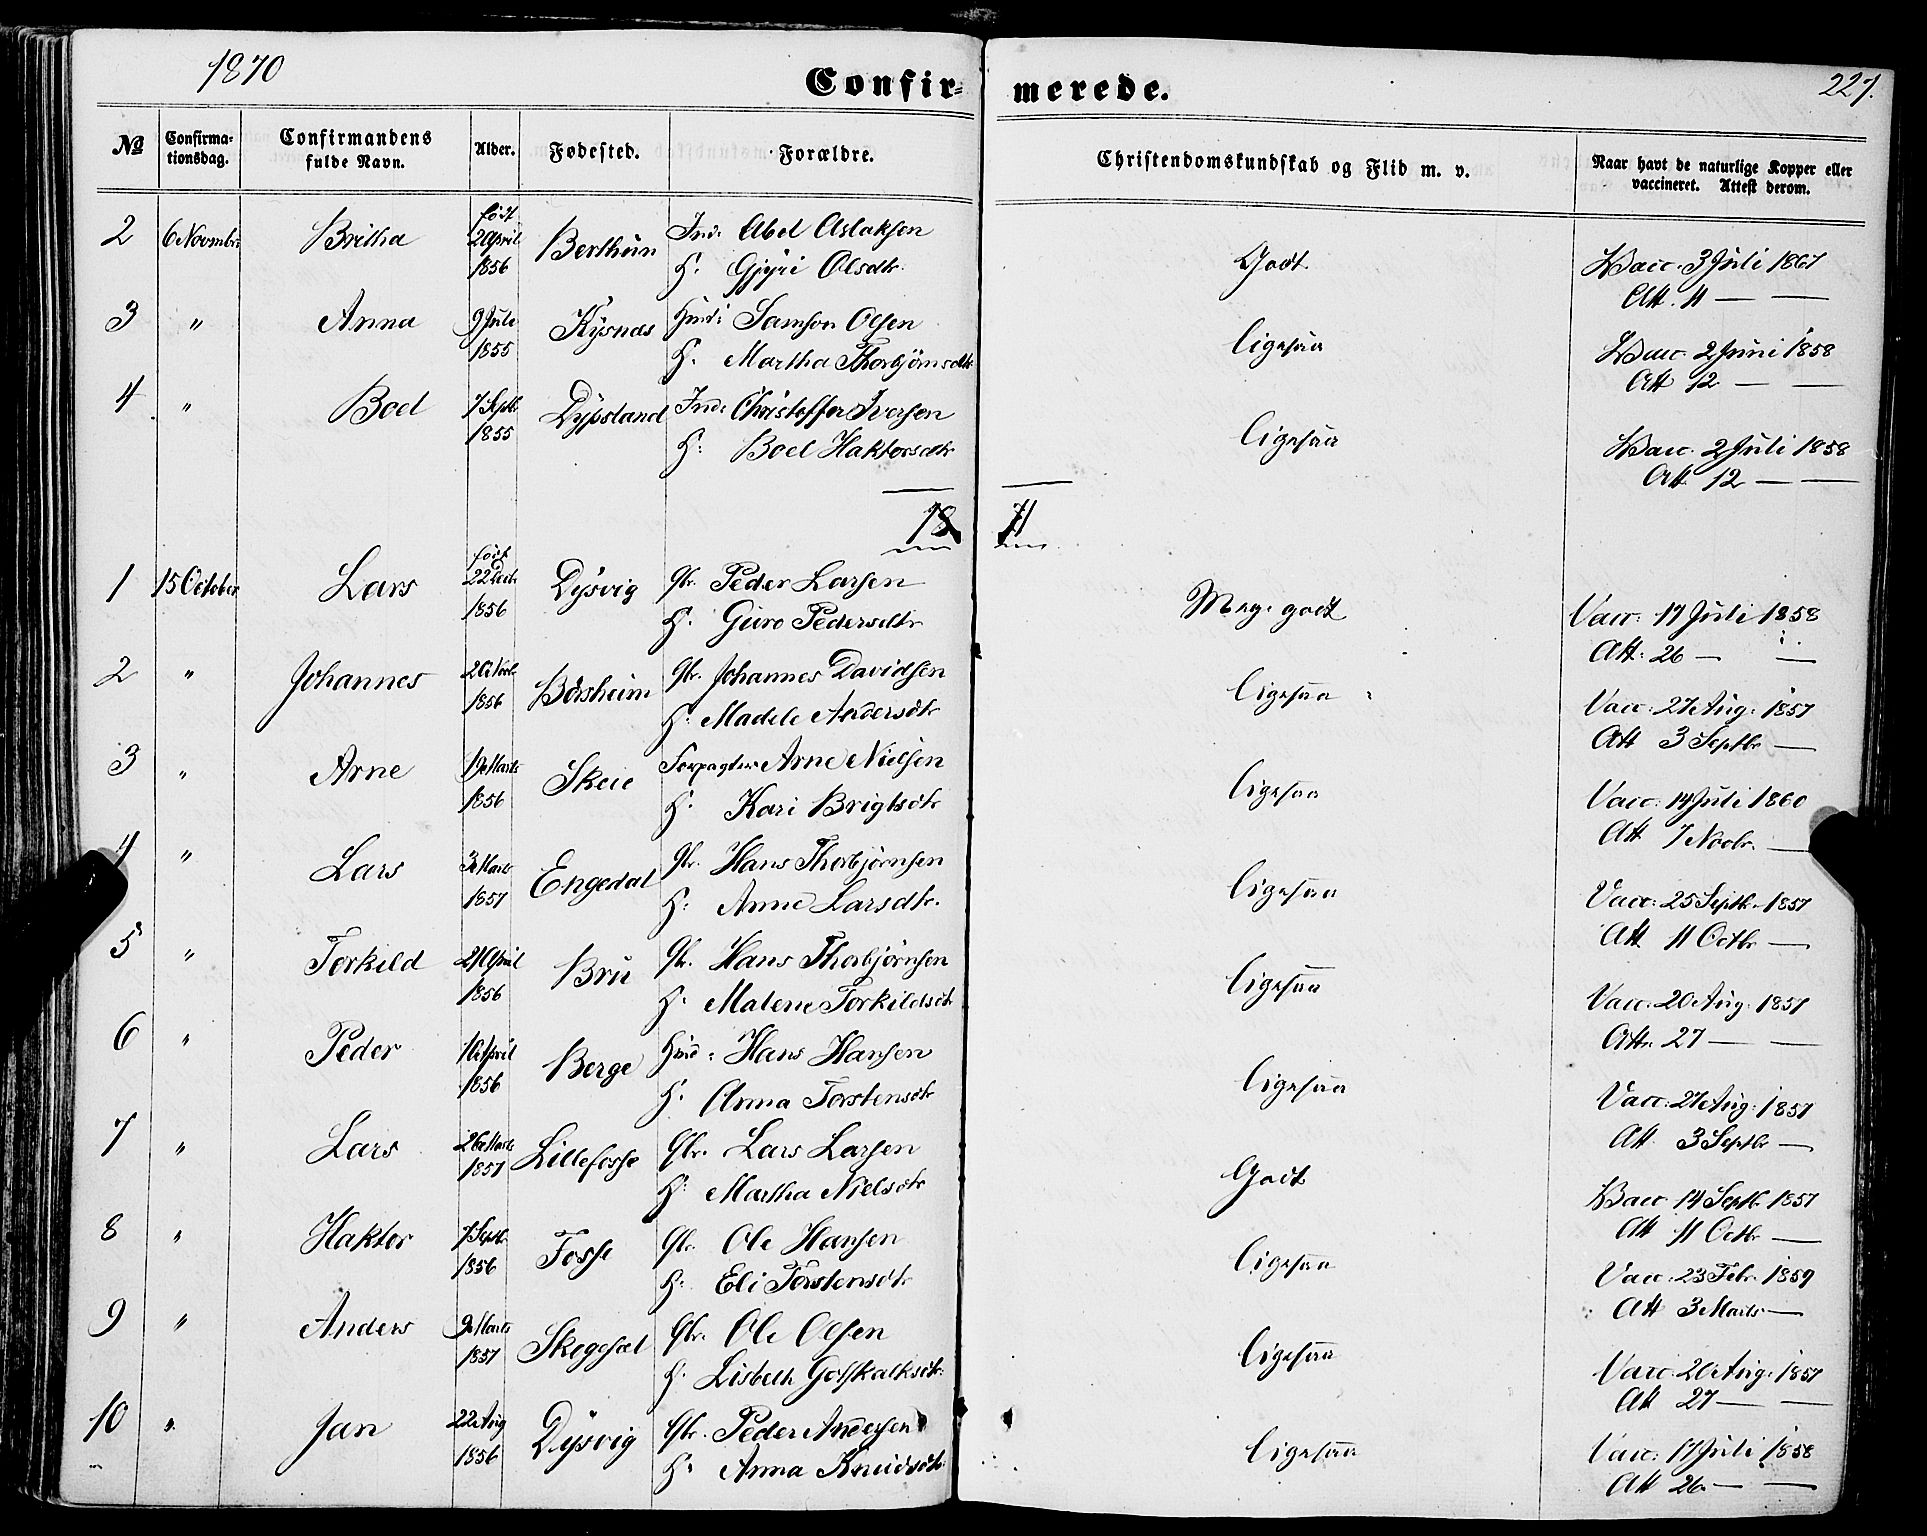 1870
Confirmerede.
227.
№ Confirmationsdag. Confirmandens fulde Navn. Alder. Fødested. Forældre. Christendomskundskab og Flid m. v. Naar havt de naturlige Kopper eller vaccineret. Attest derom.
2 6 Novembr Britha født 2 April 1856 Berthun Ind: Abel Aslaksen Godt Vacc. 3 Juli 1867
H: Gjyri Olsdtr. Att. 11 — —
3 " Anna 9 Juli 1855 Kysnæs Huus: Samson Olsen Ligesaa Vacc. 2 Juni 1858
H. Martha Thorbjørnsdtr Att 12 — —
4 " Boel 7 Septb 1855 Dypsland Ind: Christoffer Iversen Ligesaa Vacc. 2 Juli 1858
H: Boel Haktorsdtr Att 12 — —
18 11
1 15 October Lars født 22 Decb 1856 Dysvig Gbr. Peder Larsen Meget godt Vacc: 17 Juli 1858
H. Guro Pedersdtr Att: 26 — —
2 " Johannes 20 Novb 1856 Børsheim Gbr. Johannes Davidsen Ligesaa Vacc: 27 Aug: 1857
H: Madele Andersdtr Att 3 Septbr —
3 " Arne 19 Marts 1856 Skeie Forpagter Arne Nielsen Ligesaa Vacc: 14 Juli 1860
H: Kari Brigtsdtr Att 7 Novbr. —
4 " Lars 3 Marts 1857 Engedal Gbr. Hans Thorbjørnsen Ligesaa Vacc: 25 Septbr 1857
H: Anne Larsdtr. Att 11 Octbr —
5 " Torkild 21 April 1856 Bru Gbr. Hans Thorbjørnsen Ligesaa Vacc. 20 Aug. 1857
H: Malene Torkildsdtr Att. 27 — —
6 " Peder 16 April 1856 Berge Huus: Hans Hansen Ligesaa Vacc: 27 Aug: 1857
H. Anna Torstensdtr Att. 3 Septbr —
7 " Lars 26 Marts 1857 Lillefosse Gbr. Lars Larsen Godt Vacc. 14 Septb. 1857
H: Martha Nielsdtr Att 11 Octbr —
8 " Haktor 7 Septb. 1856 Fosse Gbr. Ole Hansen Ligesaa Vacc: 23 Febr. 1859
H: Eli Torstensdtr Att 3 Marts —
9 " Anders 9 Marts 1857 Skogesæl Gbr. Ole Olsen Ligesaa Vacc. 20 Aug. 1857
H. Lisbeth Gotskalksdtr. Att 27 — —
10 " Jan 22 Aug 1856 Dysvig Gbr. Peder Andersen Ligesaa Vacc: 17 Juli 1858
H: Anna Knudsdtr. Att 26 — —